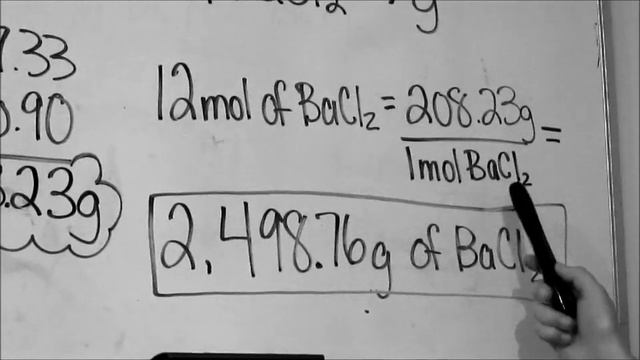 g
.33
.90
.23g
12mol of BaCl₂ = 208.23g =
1mol BaCl₂
2,498.76g of BaCl₂